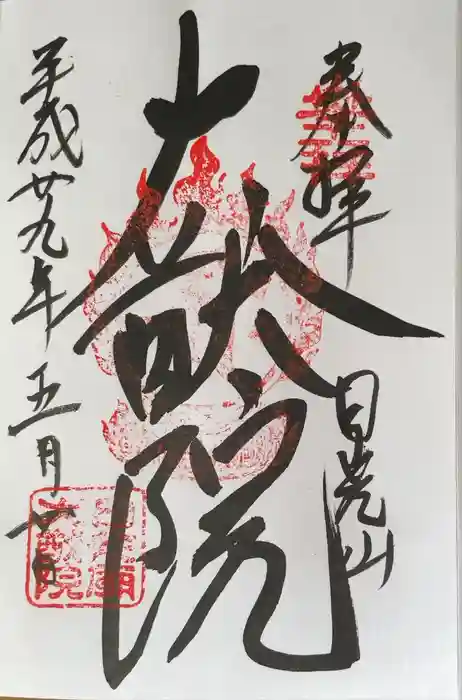 奉拝
日光山
大猷院
平成廿九年五月廿日
家光廟
大猷院